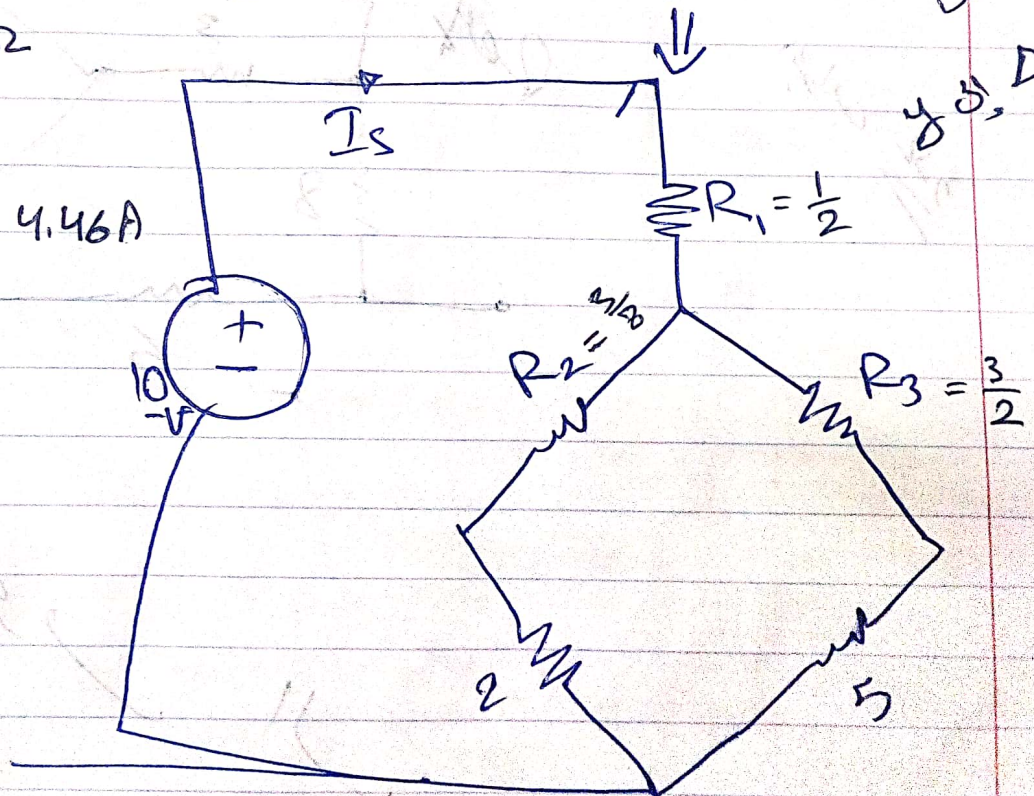 2
Is
4.46A
R₁ = 1/2
R2 =
R3 = 3/2
+
-
10
-V
2
5